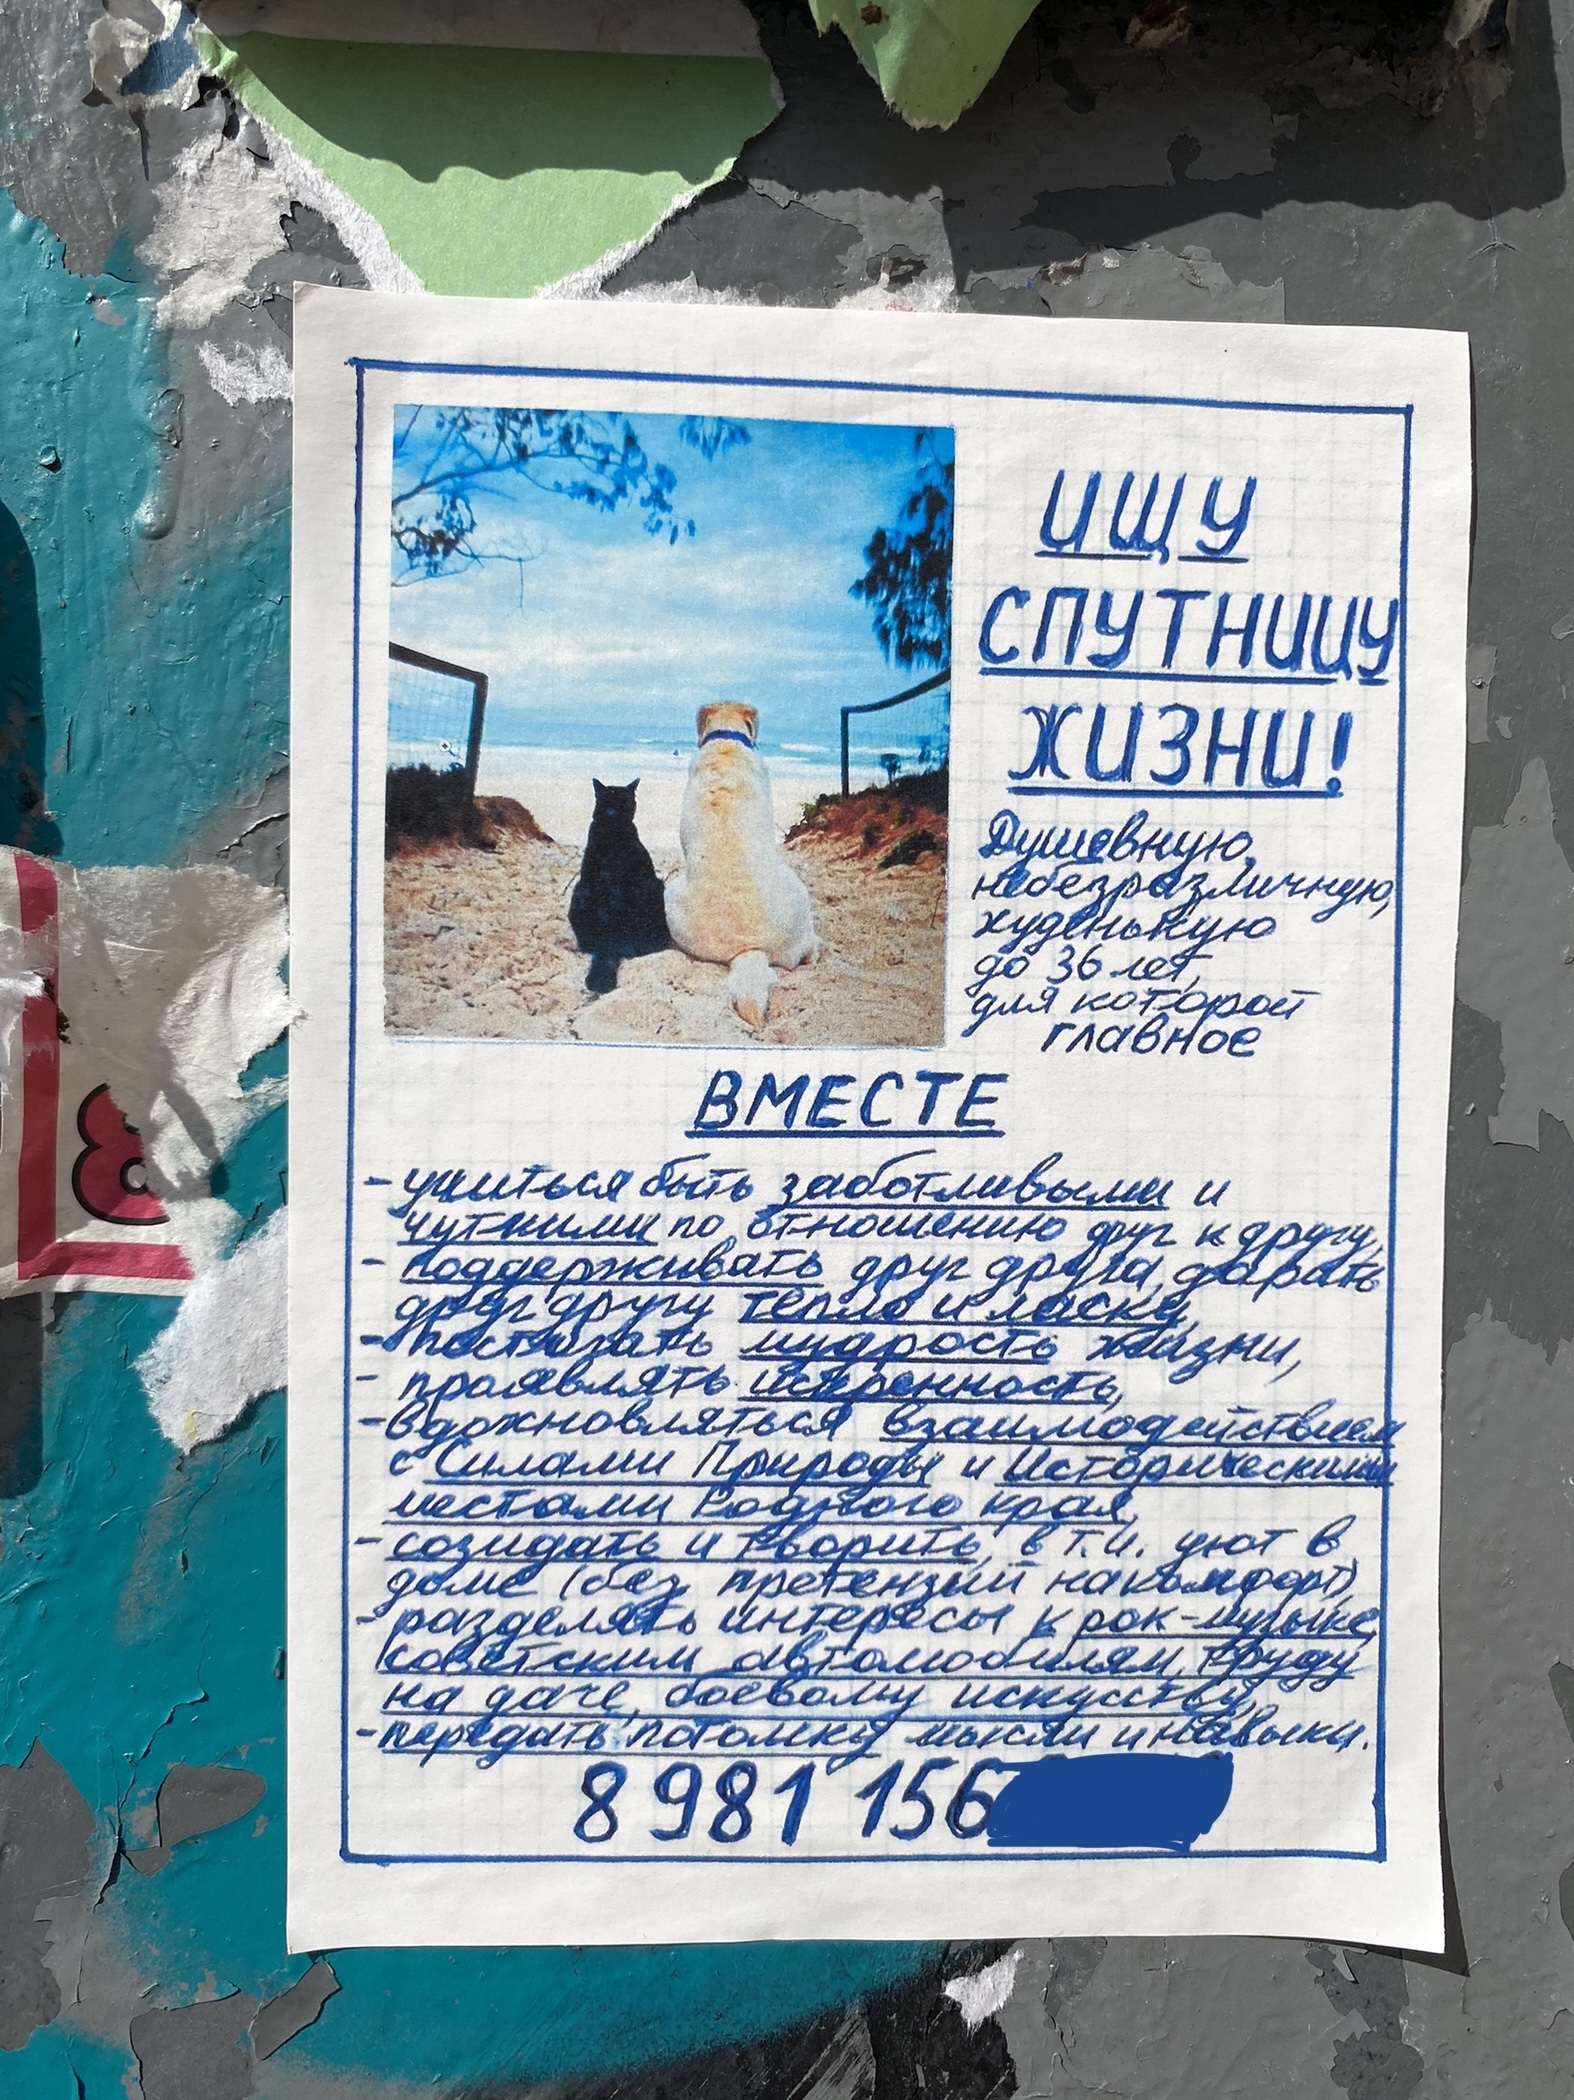 ИЩУ
СПУТНИЦУ
ЖИЗНИ!
Душевную,
небезразличную,
худенькую
до 36 лет,
для которой
главное
ВМЕСТЕ
- учиться быть заботливыми и
чуткими по отношению друг к другу,
- поддерживать друг друга, дарать
друг другу тепло и ласку,
- постигать мудрость жизни,
- проявлять искренность,
- вдохновляться взаимодействием
с Силами Природы и Историческими
местами Родного края,
- созидать и творить, в т.ч. уют в
доме (без претензий на комфорт),
- разделять интересы к рок-музыке,
советским автомобилям, труду
на даче, боевому искусству,
- передать потомку мысли и навыки.
8 981 156
8